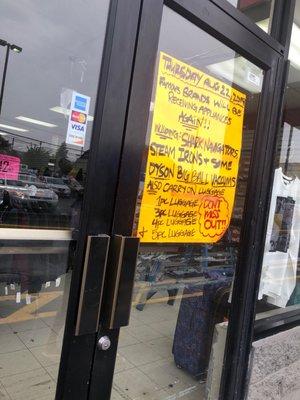 THURSDAY AUG 22, 2019
FAMOUS BRANDS WILL BE
RECEIVING APPLIANCES
AGAIN!!
INCLUDING: SHARK NAVIGATORS
STEAM IRONS & SOME
DYSON BIG BALL VACUUMS
ALSO CARRY ON LUGGAGE
1pc LUGGAGE
3pc LUGGAGE
4pc LUGGAGE
& 5pc LUGGAGE
DON'T
MISS
OUT!!
MasterCard
VISA